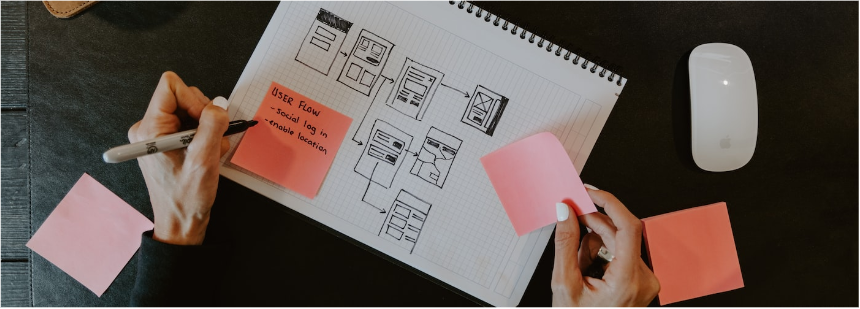 USER FLOW
- social log in
- enable location